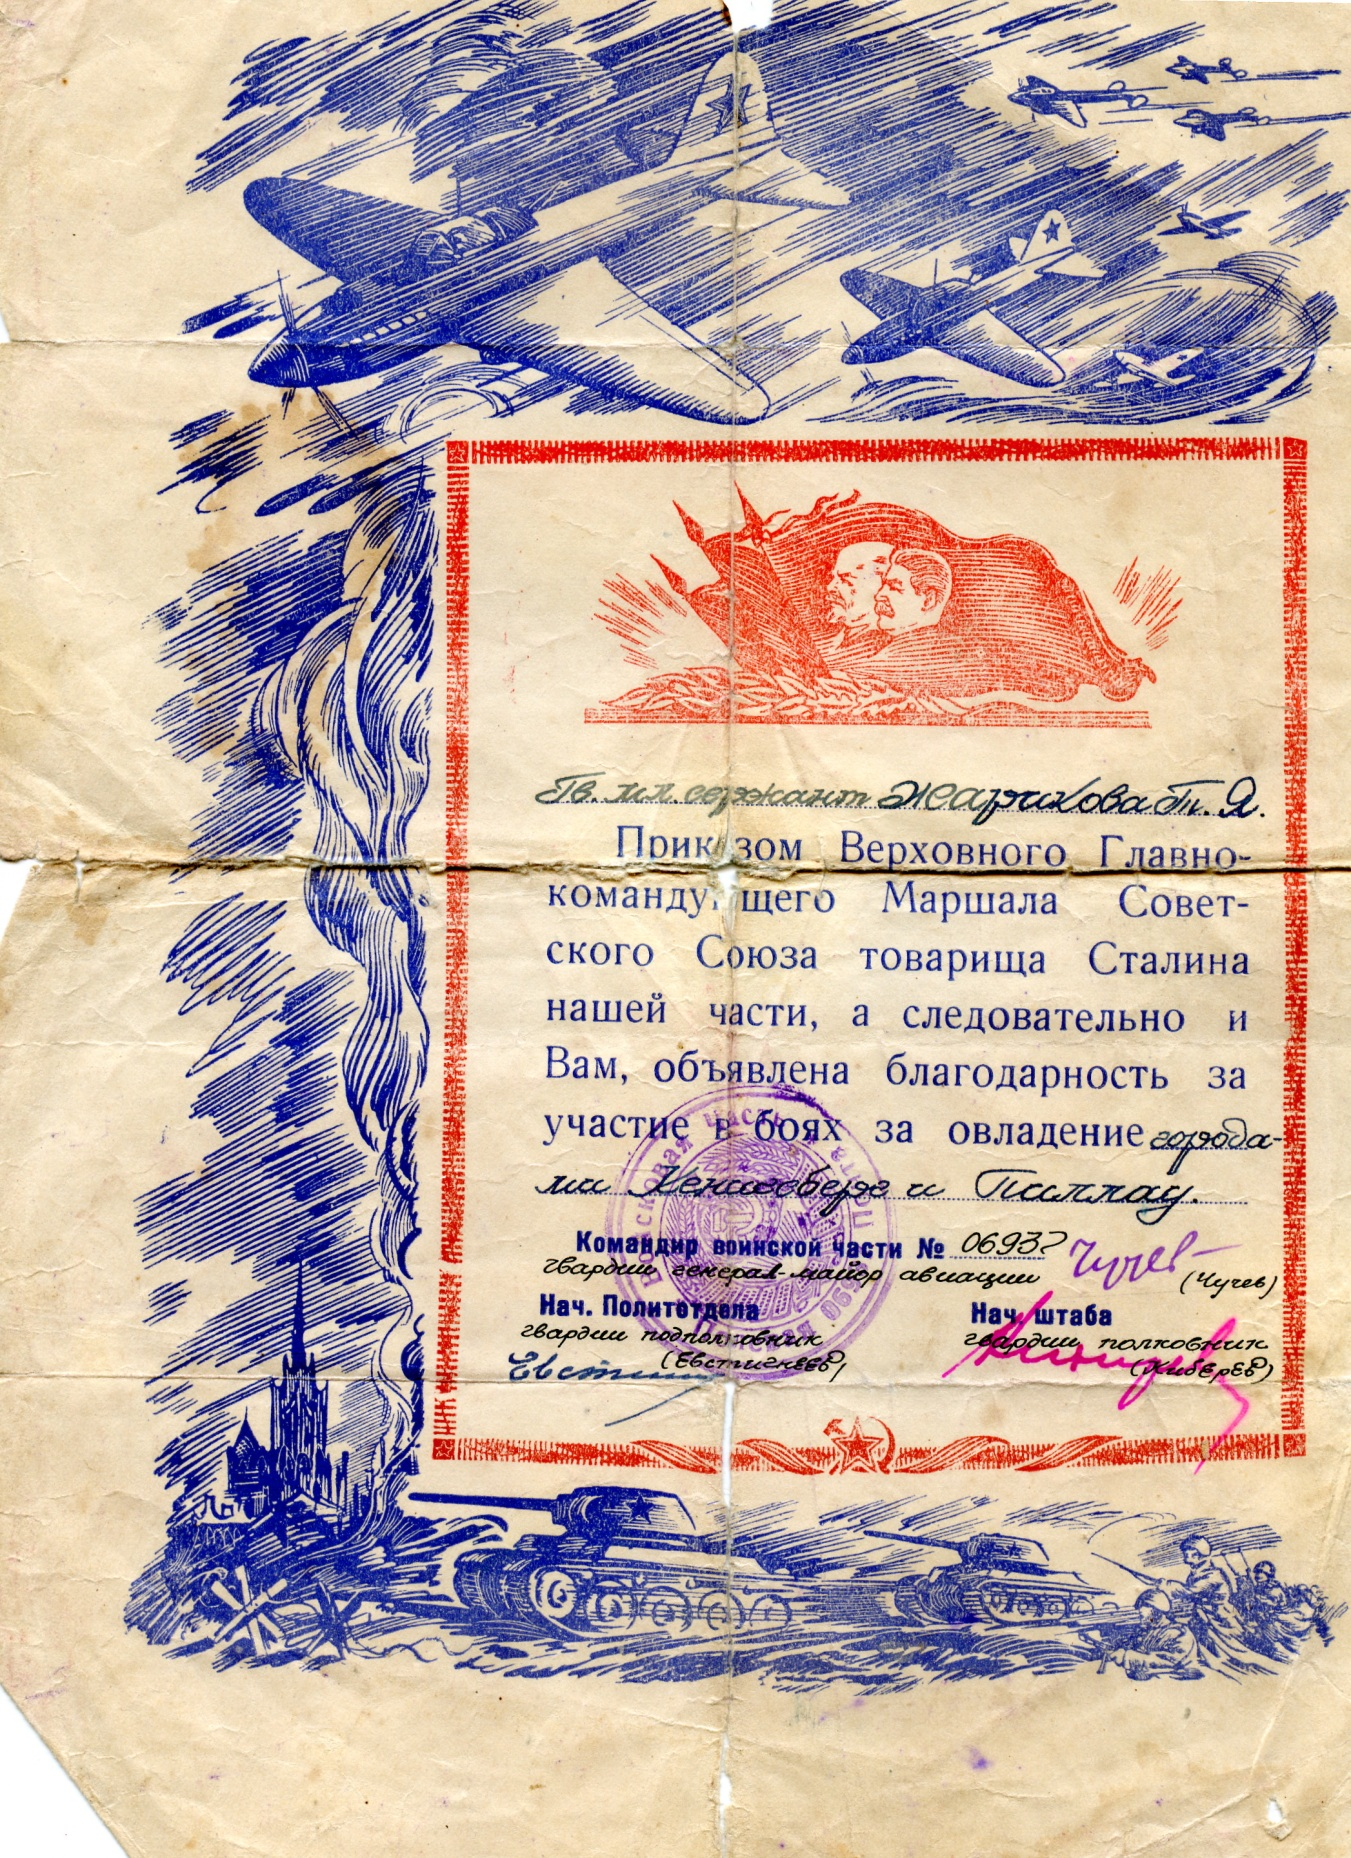 Гв. мл. сержант Жарикова Т. Я.
Приказом Верховного Главно-
командующего Маршала Совет-
ского Союза товарища Сталина
нашей части, а следовательно и
Вам, объявлена благодарность за
участие в боях за овладение города-
ми Кенигсберг и Пиллау.
Командир воинской части № 06937 Чучев
гвардии генерал-майор авиации (Чучев)
Нач. Политотдела Нач. штаба
гвардии подполковник гвардии полковник
(Евстигнеев) (Киберев)
Войсковая часть Полевая почта